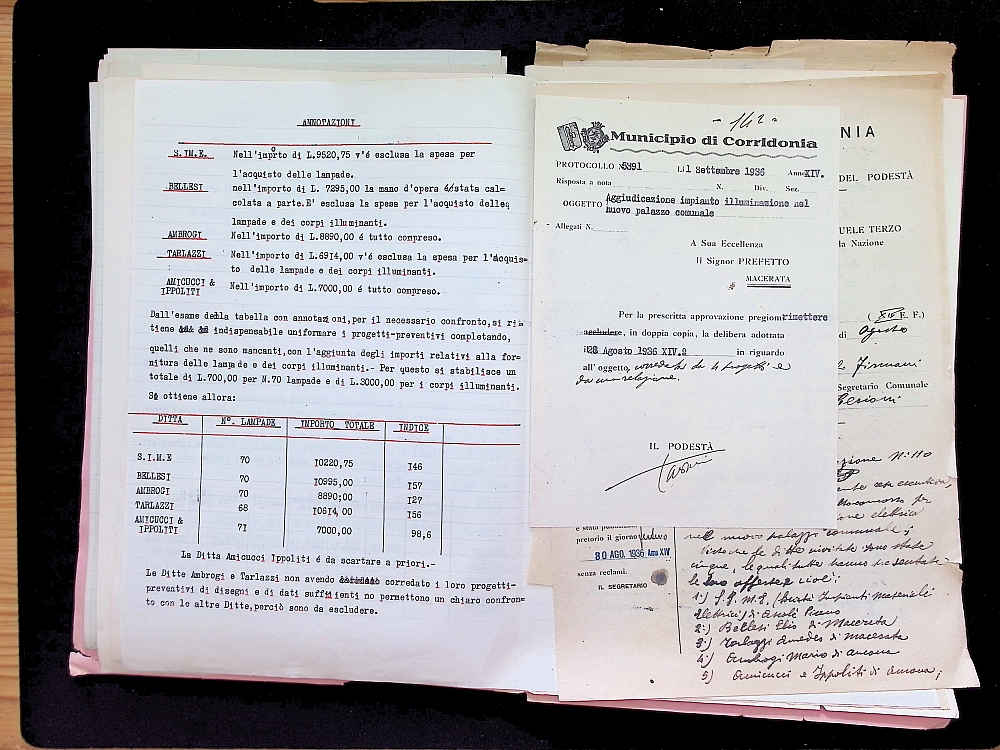 ANNOTAZIONI
S.IM.E. Nell'imprto di L.9520,75 v'é esclusa la spesa per
l'acquisto delle lampade.
BELLESI nell'importo di L. 7295,00 la mano d'opera é stata cal=
colata a parte.E' esclusa la spesa per l'acquisto delle
lampade e dei corpi illuminanti.
AMBROGI Nell'importo di L.8890,00 é tutto compreso.
TARLAZZI Nell'importo di L.6914,00 v'é esclusa la spesa per l'acquis=
to delle lampade e dei corpi illuminanti.
AMICUCCI &
IPPOLITI Nell'importo di L.7000,00 é tutto compreso.
Dall'esame della tabella con annotazioni,per il necessario confronto,si ri=
tiene indispensabile uniformare i progetti-preventivi completando,
quelli che ne sono mancanti,con l'aggiunta degli importi relativi alla for=
nitura delle lampade e dei corpi illuminanti.- Per questo si stabilisce un
totale di L.700,00 per N.70 lampade e di L.3000,00 per i corpi illuminanti.
Si ottiene allora:
DITTA N°. LAMPADE IMPORTO TOTALE INDICE
S.I.M.E 70 10220,75 146
BELLESI 70 10995,00 157
AMBROGI 70 8890;00 127
TARLAZZI 68 10614,00 156
AMICUCCI &
IPPOLITI 71 7000,00 98,6
La Ditta Amicucci Ippoliti é da scartare a priori.-
Le Ditte Ambrogi e Tarlazzi non avendo corredato i loro progetti-
preventivi di disegni e di dati sufficienti non permettono un chiaro confron=
to con le altre Ditte,perciò sono da escludere.
- 142 -
Municipio di Corridonia
PROTOCOLLO N. 5391 Li 1 Settembre 1936 Anno XIV.
Risposta a nota N. Div. Sez.
OGGETTO Aggiudicazione impianto illuminazione nel
nuovo palazzo comunale
Allegati N.
A Sua Eccellenza
Il Signor PREFETTO
MACERATA
Per la prescritta approvazione pregiomi rimettere
accludere, in doppia copia, la delibera adottata
il 28 Agosto 1936 XIV.° in riguardo
all'oggetto, corredata da 4 progetti e
da una relazione.
IL PODESTÀ
NIA
DEL PODESTÀ
UELE TERZO
la Nazione
(XIV E. F.)
di Agosto
Segretario Comunale
zione N: 110
e stata pubblicata
pretorio il giorno festivo
30 AGO. 1936 Anno XIV
senza reclami.
IL SEGRETARIO
nel nuovo palazzo comunale;
Visto che le ditte invitate sono state
cinque, le quali tutte hanno presentato
le loro offerte e cioè:
1°) S.I.M.E. (Società Impianti Materiali
Elettrici) di Ascoli Piceno
2°) Bellesi Elio di Macerata
3°) Tarlazzi Amedeo di Macerata
4°) Ambrogi Mario di Ancona
5) Amicucci e Ippoliti di Ancona;